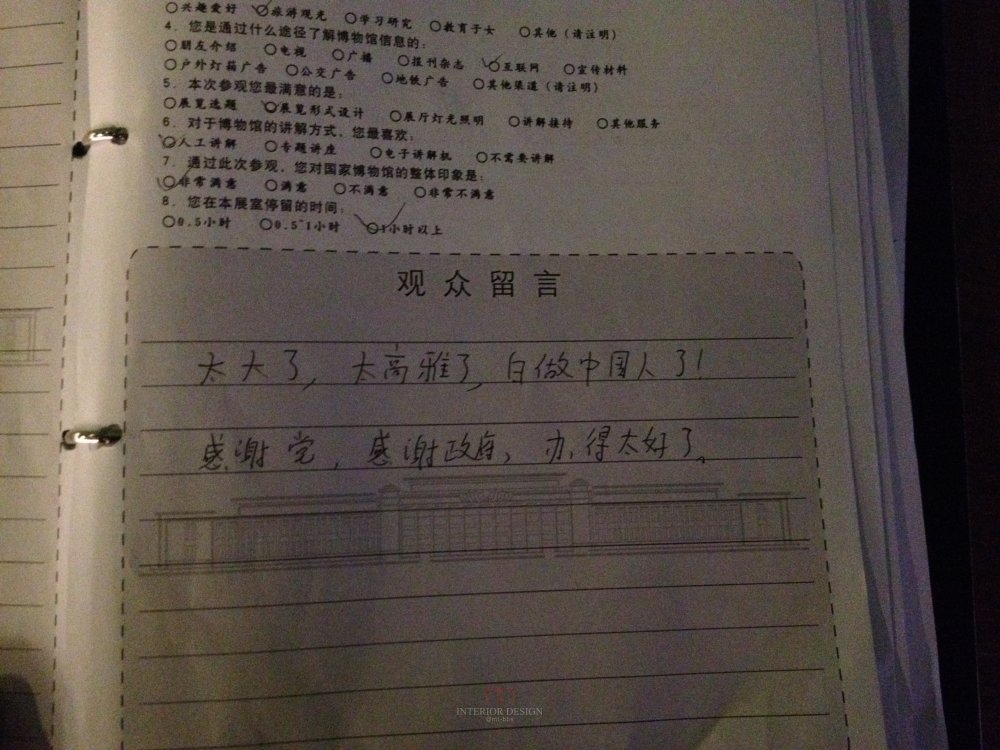 ○兴趣爱好 ○旅游观光 ○学习研究 ○教育子女 ○其他(请注明)
4、您是通过什么途径了解博物馆信息的:
○朋友介绍 ○电视 ○广播 ○报刊杂志 ○互联网 ○宣传材料
○户外灯箱广告 ○公交广告 ○地铁广告 ○其他渠道(请注明)
5、本次参观您最满意的是:
○展览选题 ○展览形式设计 ○展厅灯光照明 ○讲解接待 ○其他服务
6、对于博物馆的讲解方式,您最喜欢:
○人工讲解 ○专题讲座 ○电子讲解机 ○不需要讲解
7、通过此次参观,您对国家博物馆的整体印象是:
○非常满意 ○满意 ○不满意 ○非常不满意
8、您在本展室停留的时间:
○0.5小时 ○0.5~1小时 ○1小时以上
观众留言
太大了,太高雅了,白做中国人了!
感谢党,感谢政府,办得太好了。
INTERIOR DESIGN
@mt-bbs